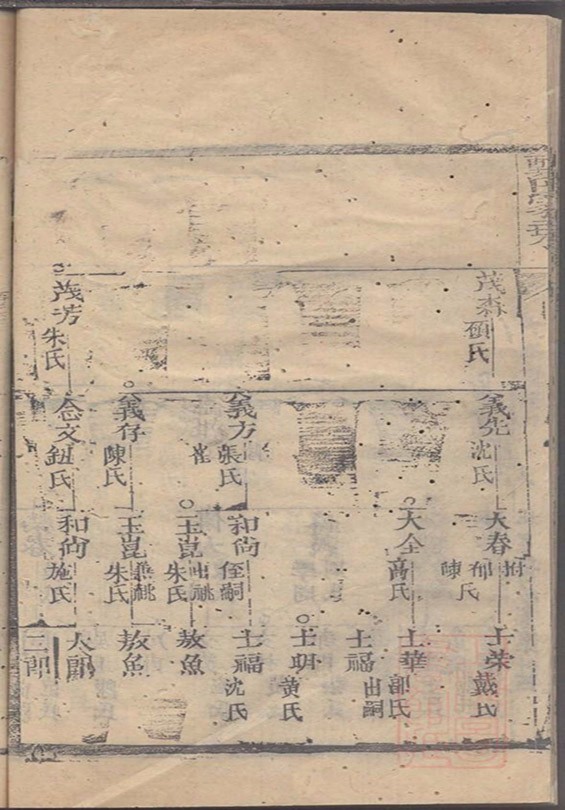 茂森
碩氏
義先
沈氏
大春
郁
陳氏
士荣
戴氏
大全
高氏
士華
郭氏
士福
出嗣
士明
黄氏
義方
張氏
崔
和尚
侄嗣
士福
沈氏
玉崑
出祧
朱氏
敖魚
義存
陳氏
玉崑
兼祧
朱氏
敖魚
茂芳
朱氏
念文
鈕氏
和尚
施氏
大郎
三郎